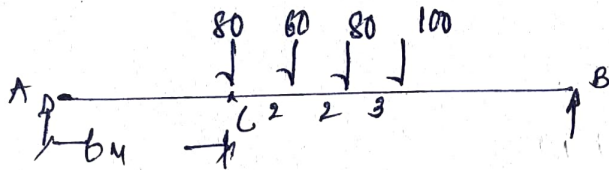 80 60 80 100
A B
C 2 2 3
6 M